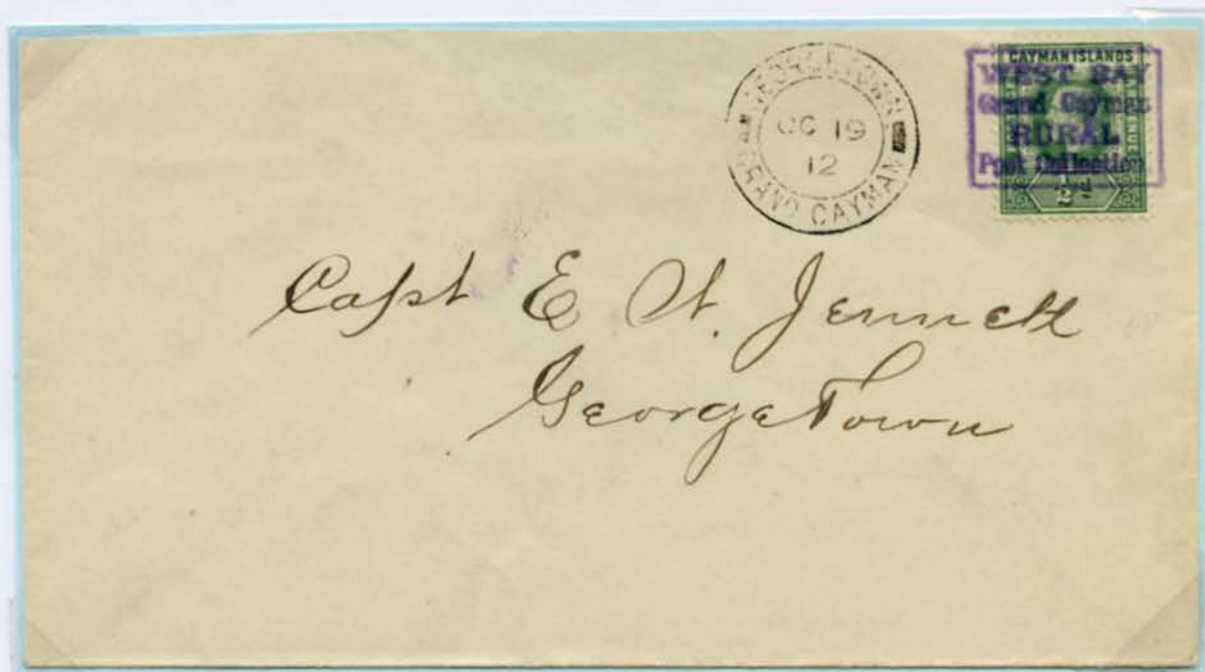 GEORGETOWN
OC 19
12
GRAND CAYMAN
CAYMAN ISLANDS
WEST BAY
Grand Cayman
RURAL
Post Collection
½d
Capt E
GeorgeTown